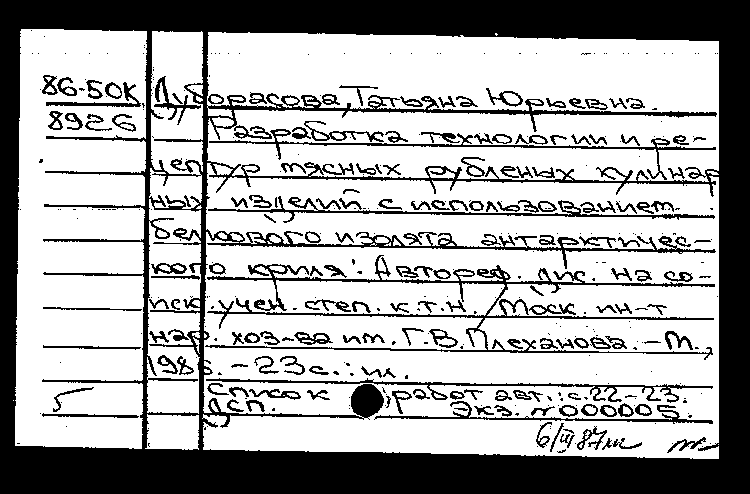 86-50К Дуборасова, Татьяна Юрьевна.
8926 Разработка технологии и ре-
цептур мясных рубленых кулинар
ных изделий с использованием
белкового изолята антарктичес-
кого криля: Автореф. дис. на со-
иск. учен. степ. к.т.н. / Моск. ин-т
нар. хоз-ва им. Г.В. Плеханова. - М.,
1986. - 23 с. : ил.
Список работ авт.: с. 22-23.
5 ДСП. Экз. № 000005.
6/III 87